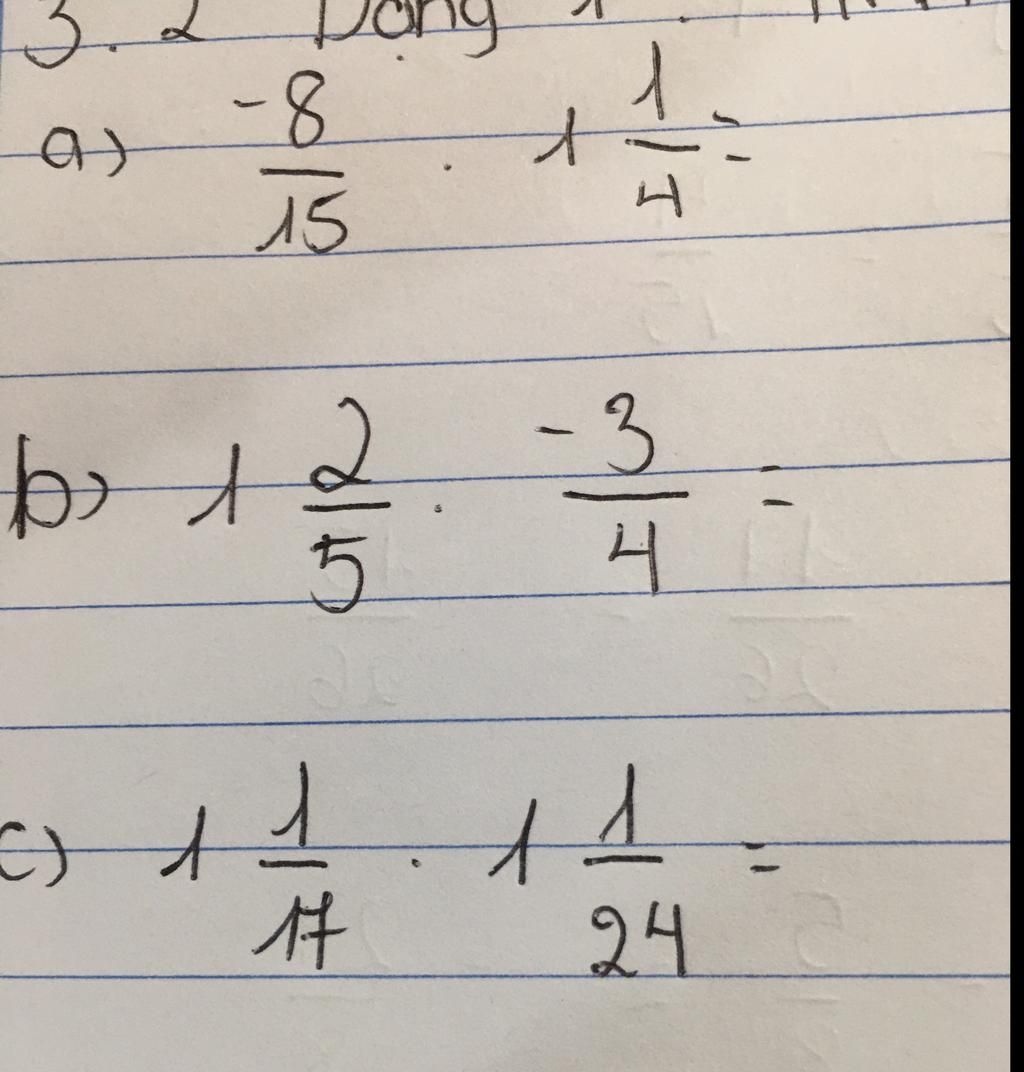 3.2 Dạng 1:
a) \frac{-8}{15} . 1\frac{1}{4} =
b) 1\frac{2}{5} . \frac{-3}{4} =
c) 1\frac{1}{17} . 1\frac{1}{24} =